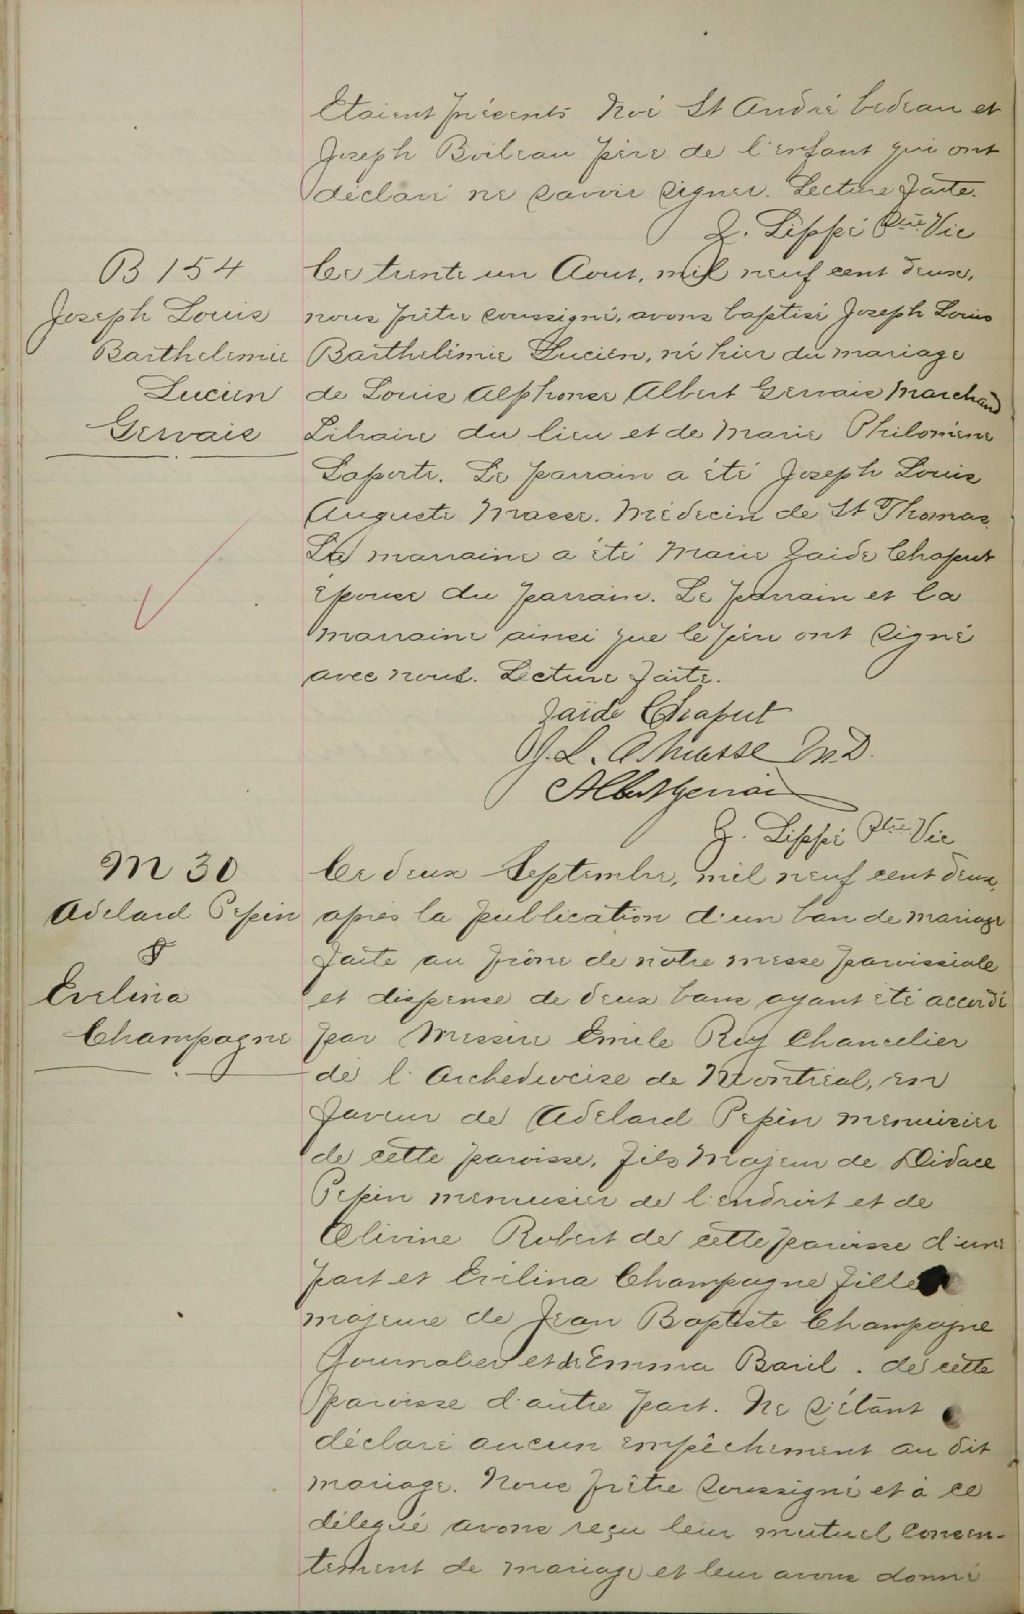 Etaient précents Noé St André bedeau et
Joseph Boileau père de l'enfant qui ont
déclaré ne savoir signer. Lecture faite.
Z. Lippé Ptre Vic
B 154
Joseph Louis
Barthelemie
Lucien
Gervais
Ce trente un Aout, mil neuf cent deux,
nous prêtre soussigné, avons baptisé Joseph Louis
Barthélémie Lucien, né hier du mariage
de Louis Alphonse Albert Gervais Marchand
Libaire du lieu et de Marie Philomène
Laporte. Le parrain a été Joseph Louis
Auguste Masse. Médecin de St Thomas.
La marraine a été Marie Zaide Chaput
épouse du parrain. Le parrain et la
marraine ainsi que le père ont signé
avec nous. Lecture faite.
Zaïde Chaput
J. L. A Masse M.D.
Albert Gervais
Z. Lippé Ptre Vic
M 30
Adelard Pepin
&
Evelina
Champagne
Ce deux Septembre, mil neuf cent deux,
après la publication d'un ban de mariage
faite au prône de notre messe paroissiale
et dispense de deux bans ayant été accordé
par Messire Emile Roy Chancelier
de l'Archediocise de Montréal, en
faveur de Adelard Pepin menuisier
de cette paroisse, fils Majeur de Didace
Pepin menuisier de l'endroit et de
Olivine Robert de cette paroisse d'une
part et Evélina Champagne fille
majeure de Jean Baptiste Champagne
Journalier et de Emma Baril. de cette
paroisse d'autre part. Ne s'étant
déclaré aucun empêchement au dit
mariage. Nous prêtre soussigné et à ce
délégué avons reçu leur mutuel consen-
tement de mariage et leur avons donné